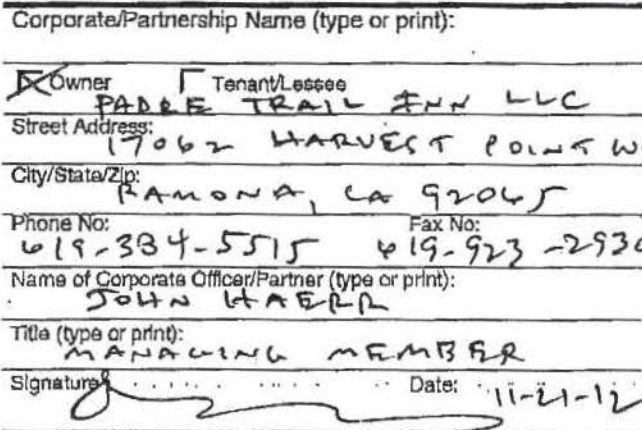 Corporate/Partnership Name (type or print):
Owner Tenant/Lessee
PADRE TRAIL INN LLC
Street Address:
17062 HARVEST POINT W
City/State/Zip:
RAMONA, CA 92065
Phone No: Fax No:
619-384-5515 619-923-293
Name of Corporate Officer/Partner (type or print):
JOHN HAERR
Title (type or print):
MANAGING MEMBER
Signature Date: 11-21-12